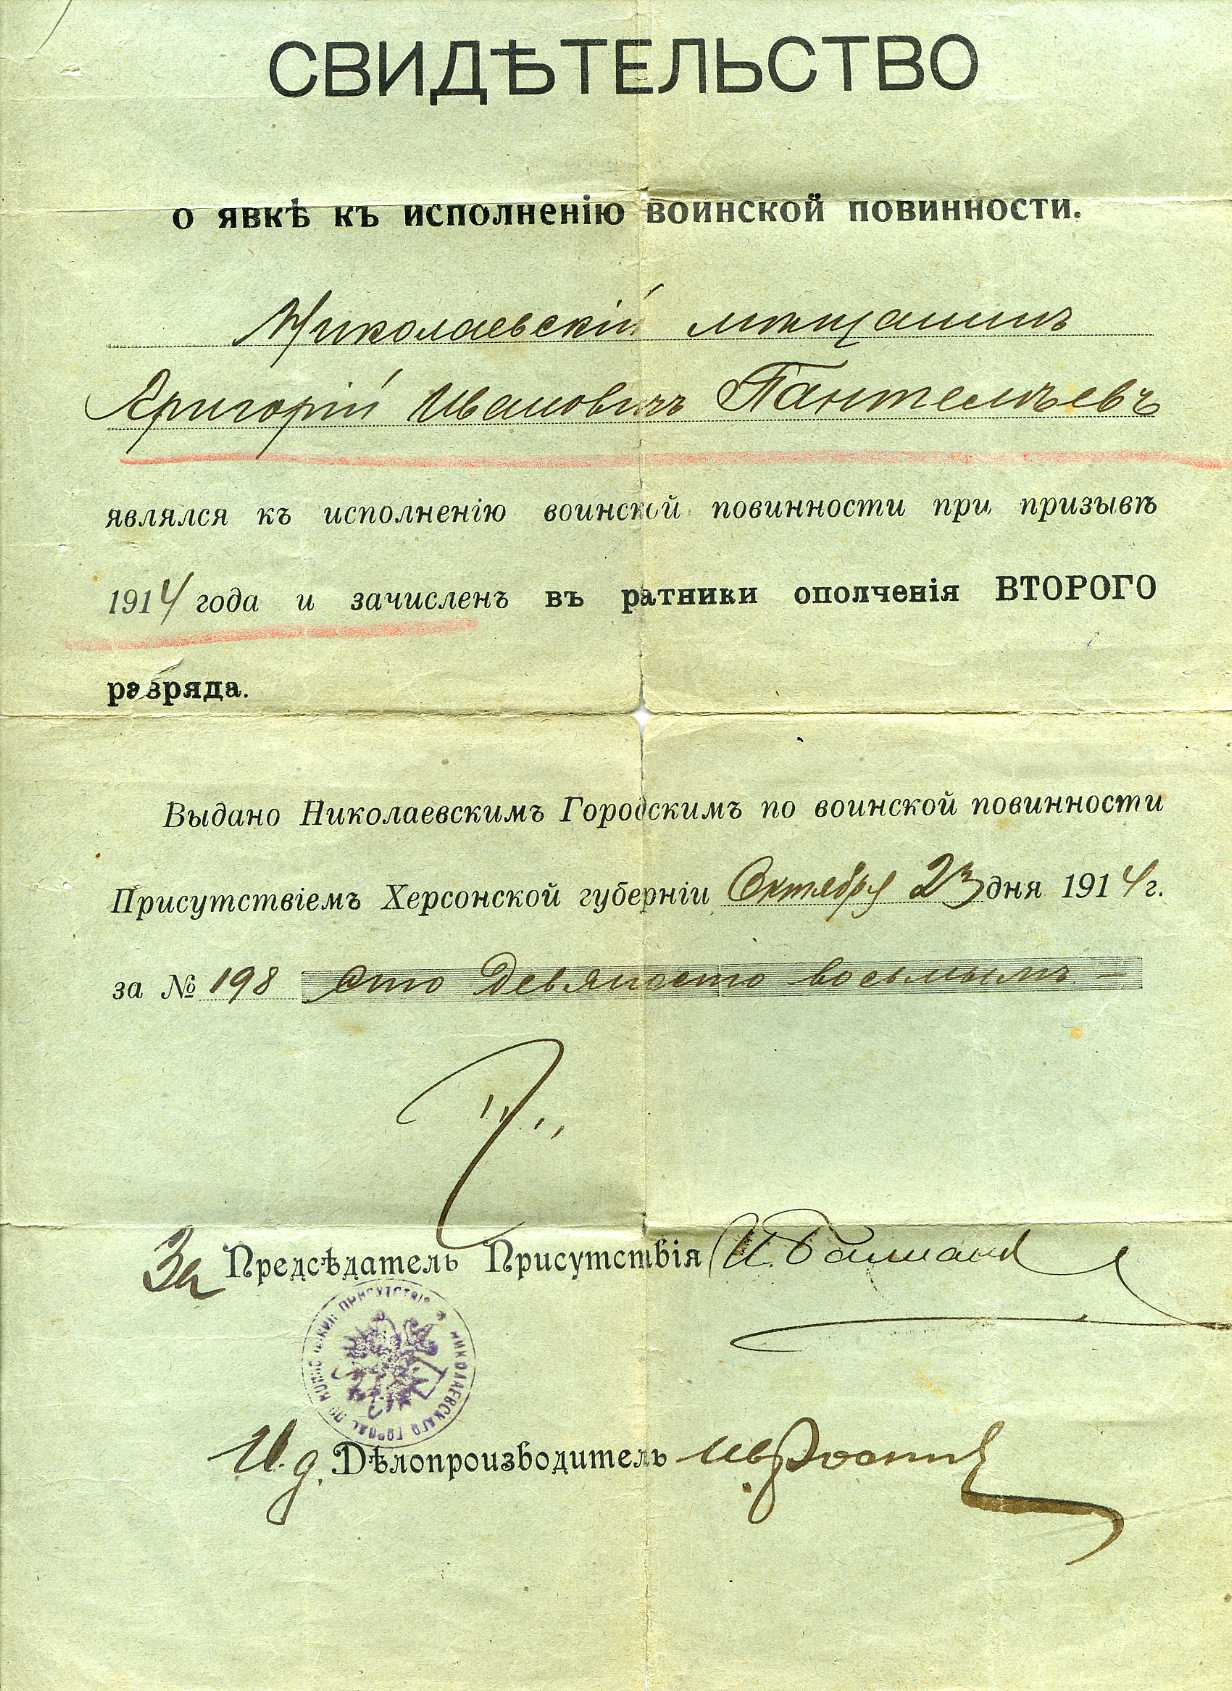 СВИДѢТЕЛЬСТВО
о явкѣ къ исполненію воинской повинности.
Николаевскій мѣщанинъ
Григорій Ивановичъ Пантелѣевъ
являлся къ исполненію воинской повинности при призывѣ
1914 года и зачисленъ въ ратники ополченія ВТОРОГО
разряда.
Выдано Николаевскимъ Городскимъ по воинской повинности
Присутствіемъ Херсонской губерніи Октября 23 дня 1914 г.
за № 198 Сто Девяносто восьмымъ –
За Предсѣдатель Присутствія
И. д. Дѣлопроизводитель